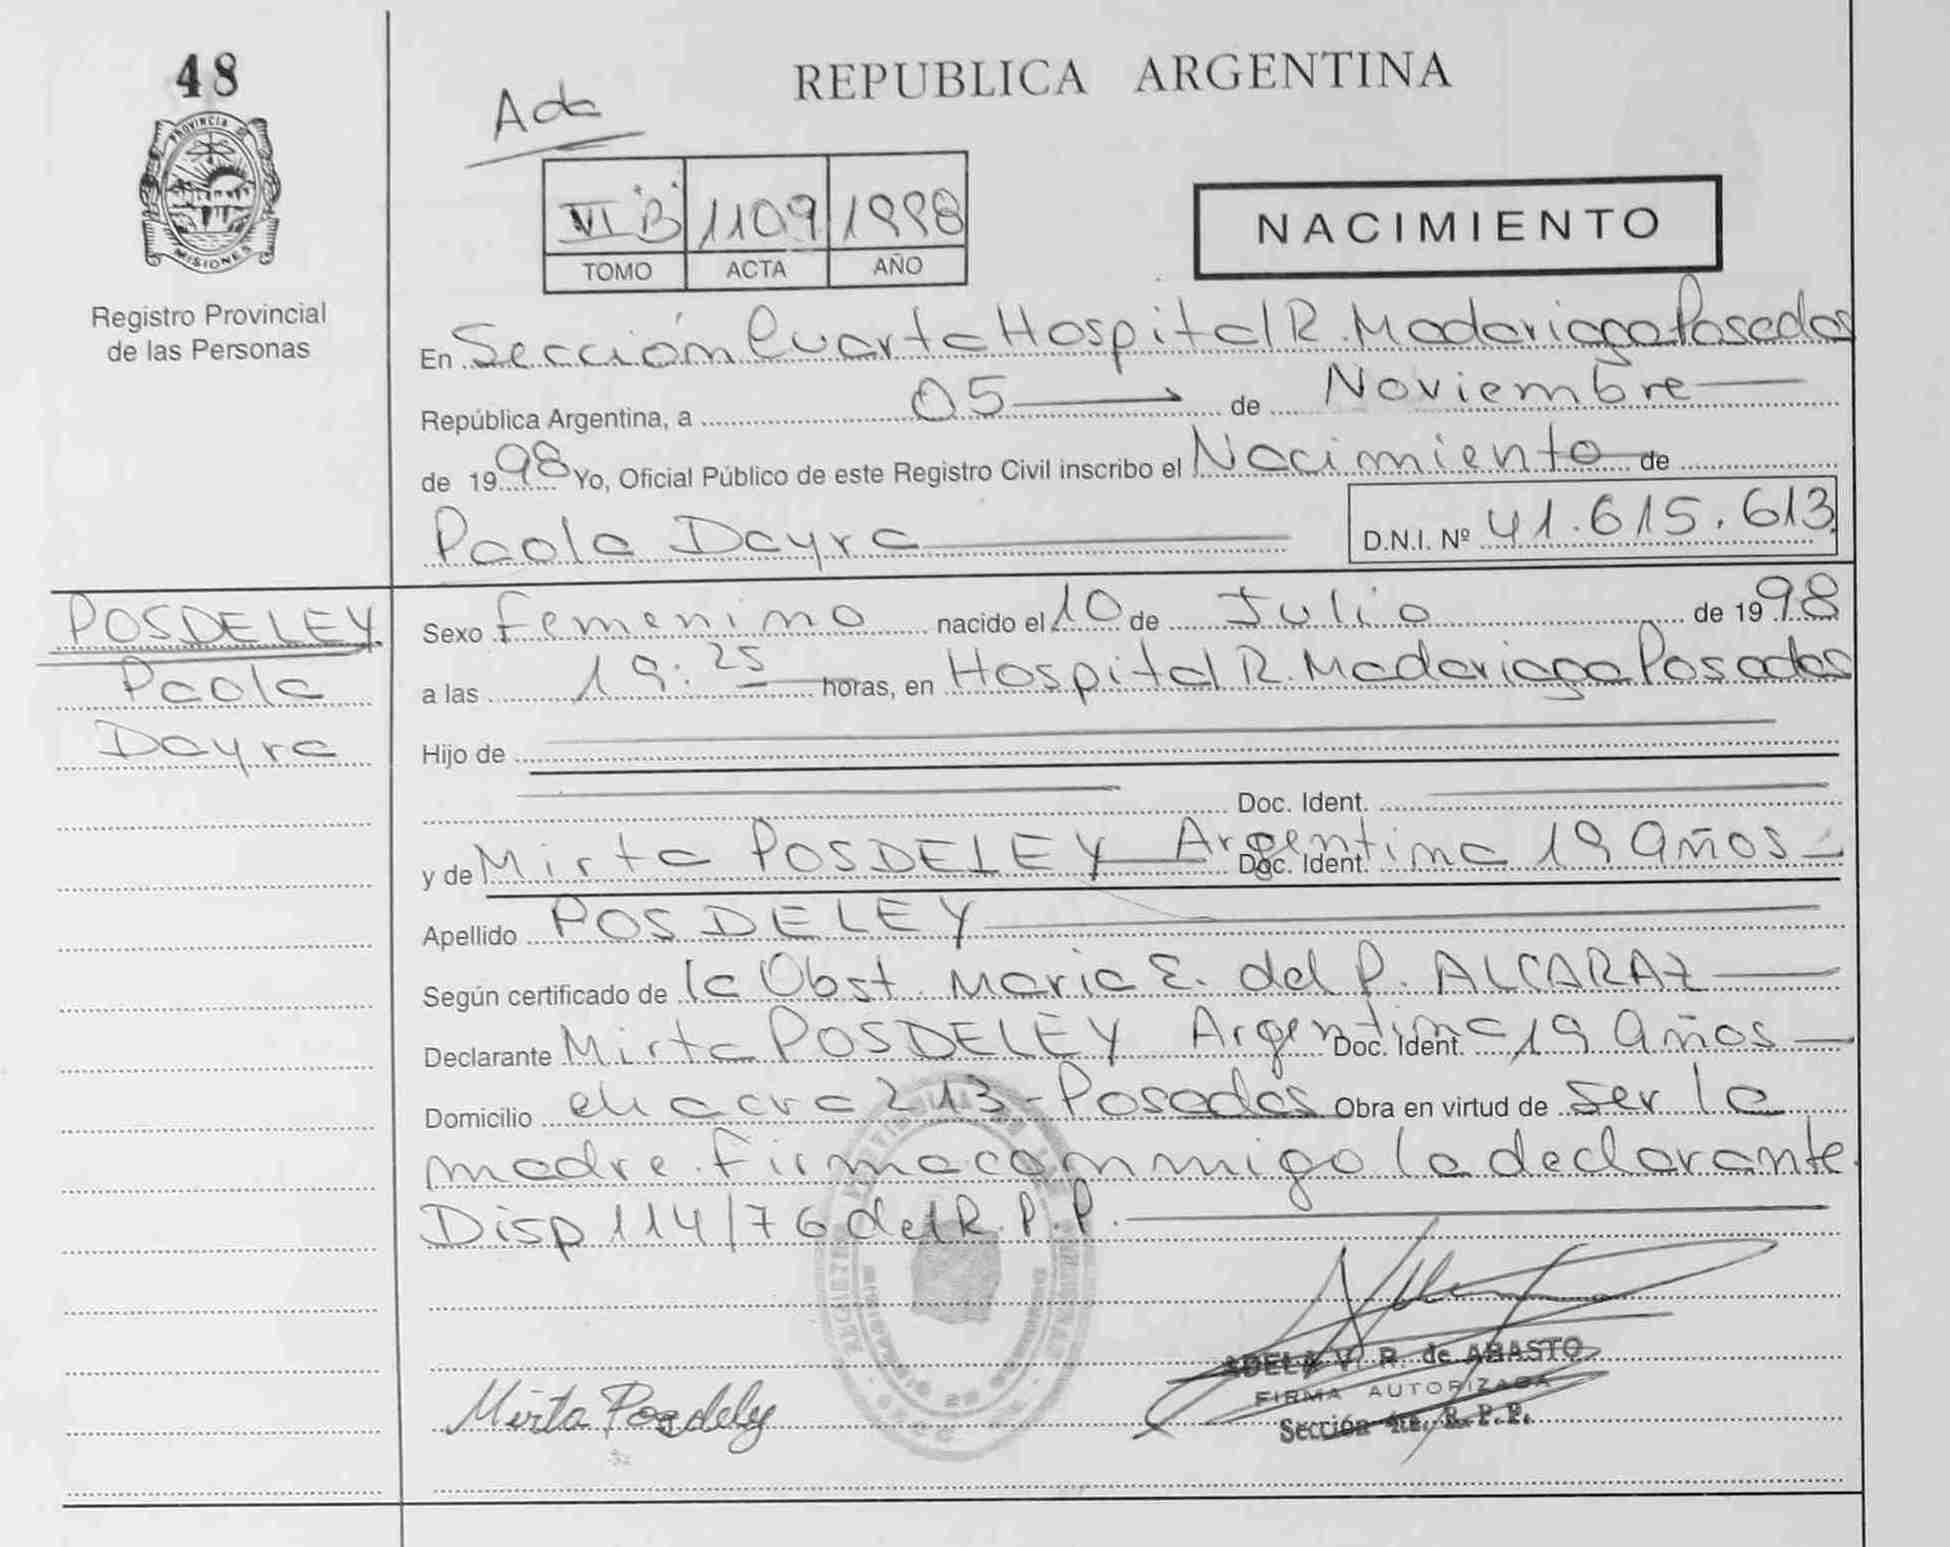 48
Ada
REPUBLICA ARGENTINA
PROVINCIA DE
MISIONES
Registro Provincial
de las Personas
VI B 1109 1998
TOMO ACTA AÑO
NACIMIENTO
En Sección Cuarta Hospital R. Madariaga Posadas
República Argentina, a 05 de Noviembre
de 1998 Yo, Oficial Público de este Registro Civil inscribo el Nacimiento de
Paola Dayra D.N.I. Nº 41.615.613
POSDELEY
Paola
Dayra
Sexo Femenino nacido el 10 de Julio de 1998
a las 19:25 horas, en Hospital R. Madariaga Posadas
Hijo de
Doc. Ident.
y de Mirta POSDELEY Argentina Doc. Ident. 19 años
Apellido POSDELEY
Según certificado de la Obst. Maria E. del P. ALCARAZ
Declarante Mirta POSDELEY Argentina Doc. Ident. 19 años
Domicilio chacra 213 - Posadas Obra en virtud de ser la
madre. Firma conmigo la declarante
Disp 114/76 del R.P.P.
Mirta Posdeley
ADELA V. R. de ABASTO
FIRMA AUTORIZADA
Sección 4ta. R.P.P.